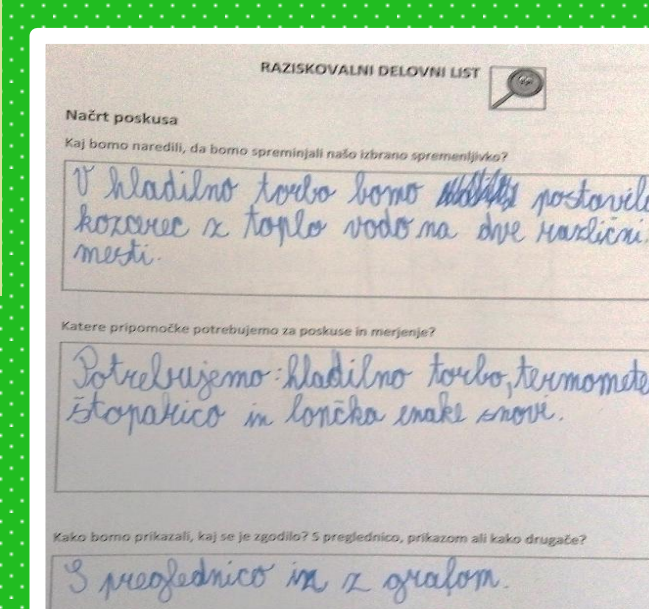 RAZISKOVALNI DELOVNI LIST
Načrt poskusa
Kaj bomo naredili, da bomo spreminjali našo izbrano spremenljivko?
V hladilno torbo bomo postavili
kozarec z toplo vodo na dve različni
mesti.
Katere pripomočke potrebujemo za poskuse in merjenje?
Potrebujemo: hladilno torbo, termomete
štoparico in lončka enake snovi.
Kako bomo prikazali, kaj se je zgodilo? S preglednico, prikazom ali kako drugače?
S preglednico in z grafom.